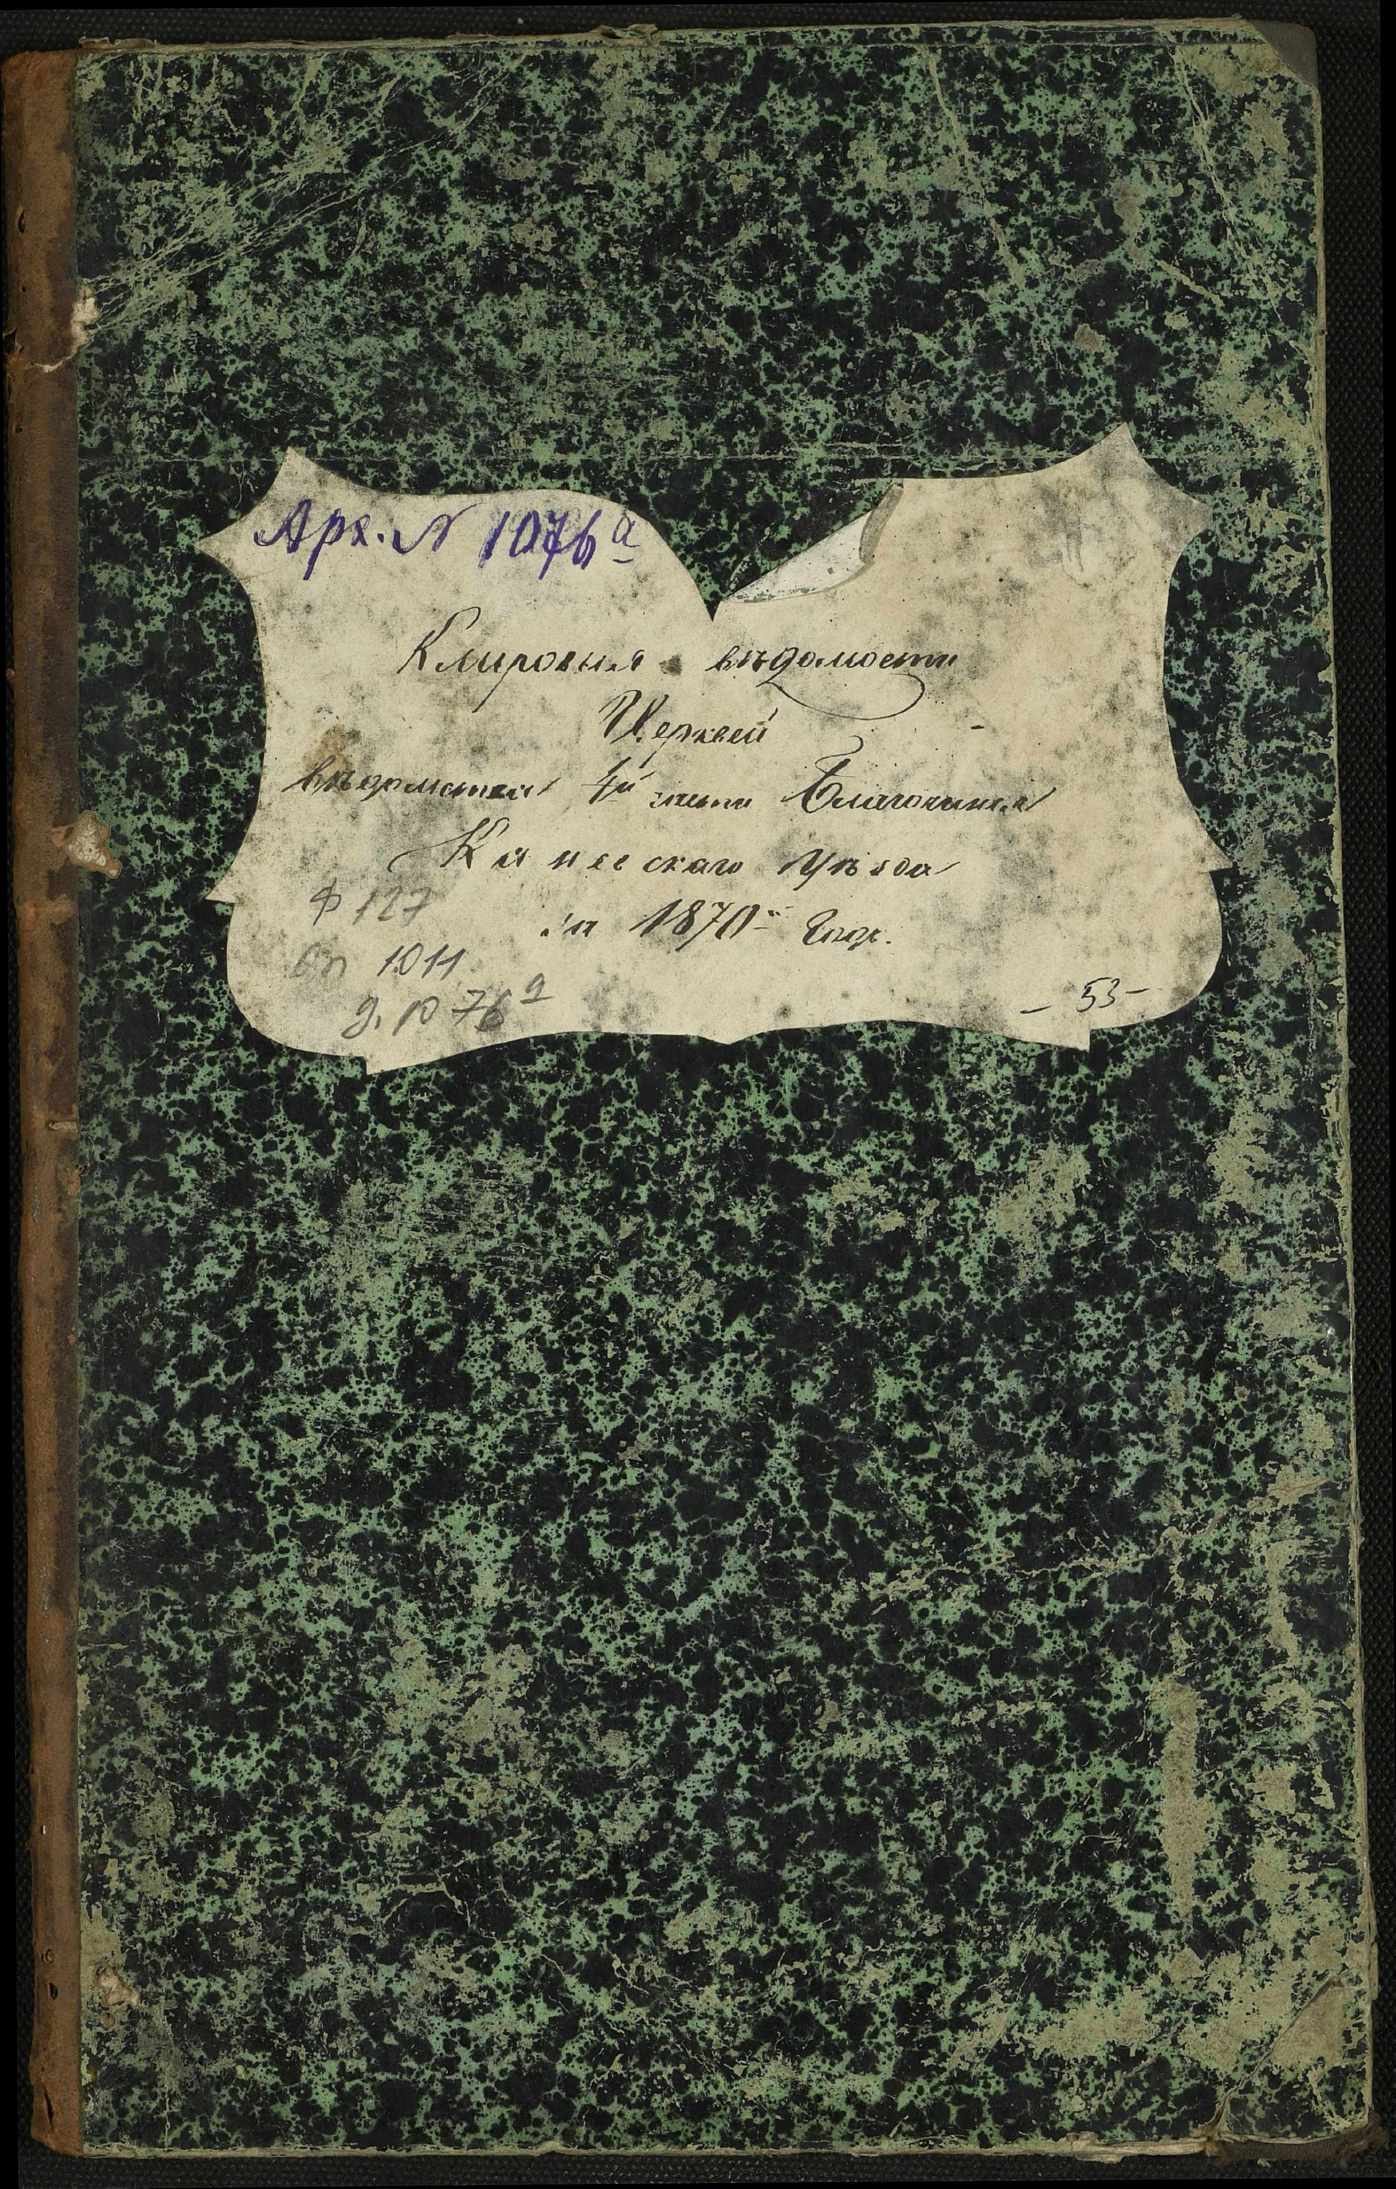 Арх. N 1076а
Клировыя вѣдомости
Церквей
вѣдомства 4й части Благочинія
Каневскаго Уѣзда
за 1870й Годъ.
Ф 127
Оп 1011
д. 1076а
- 53 -